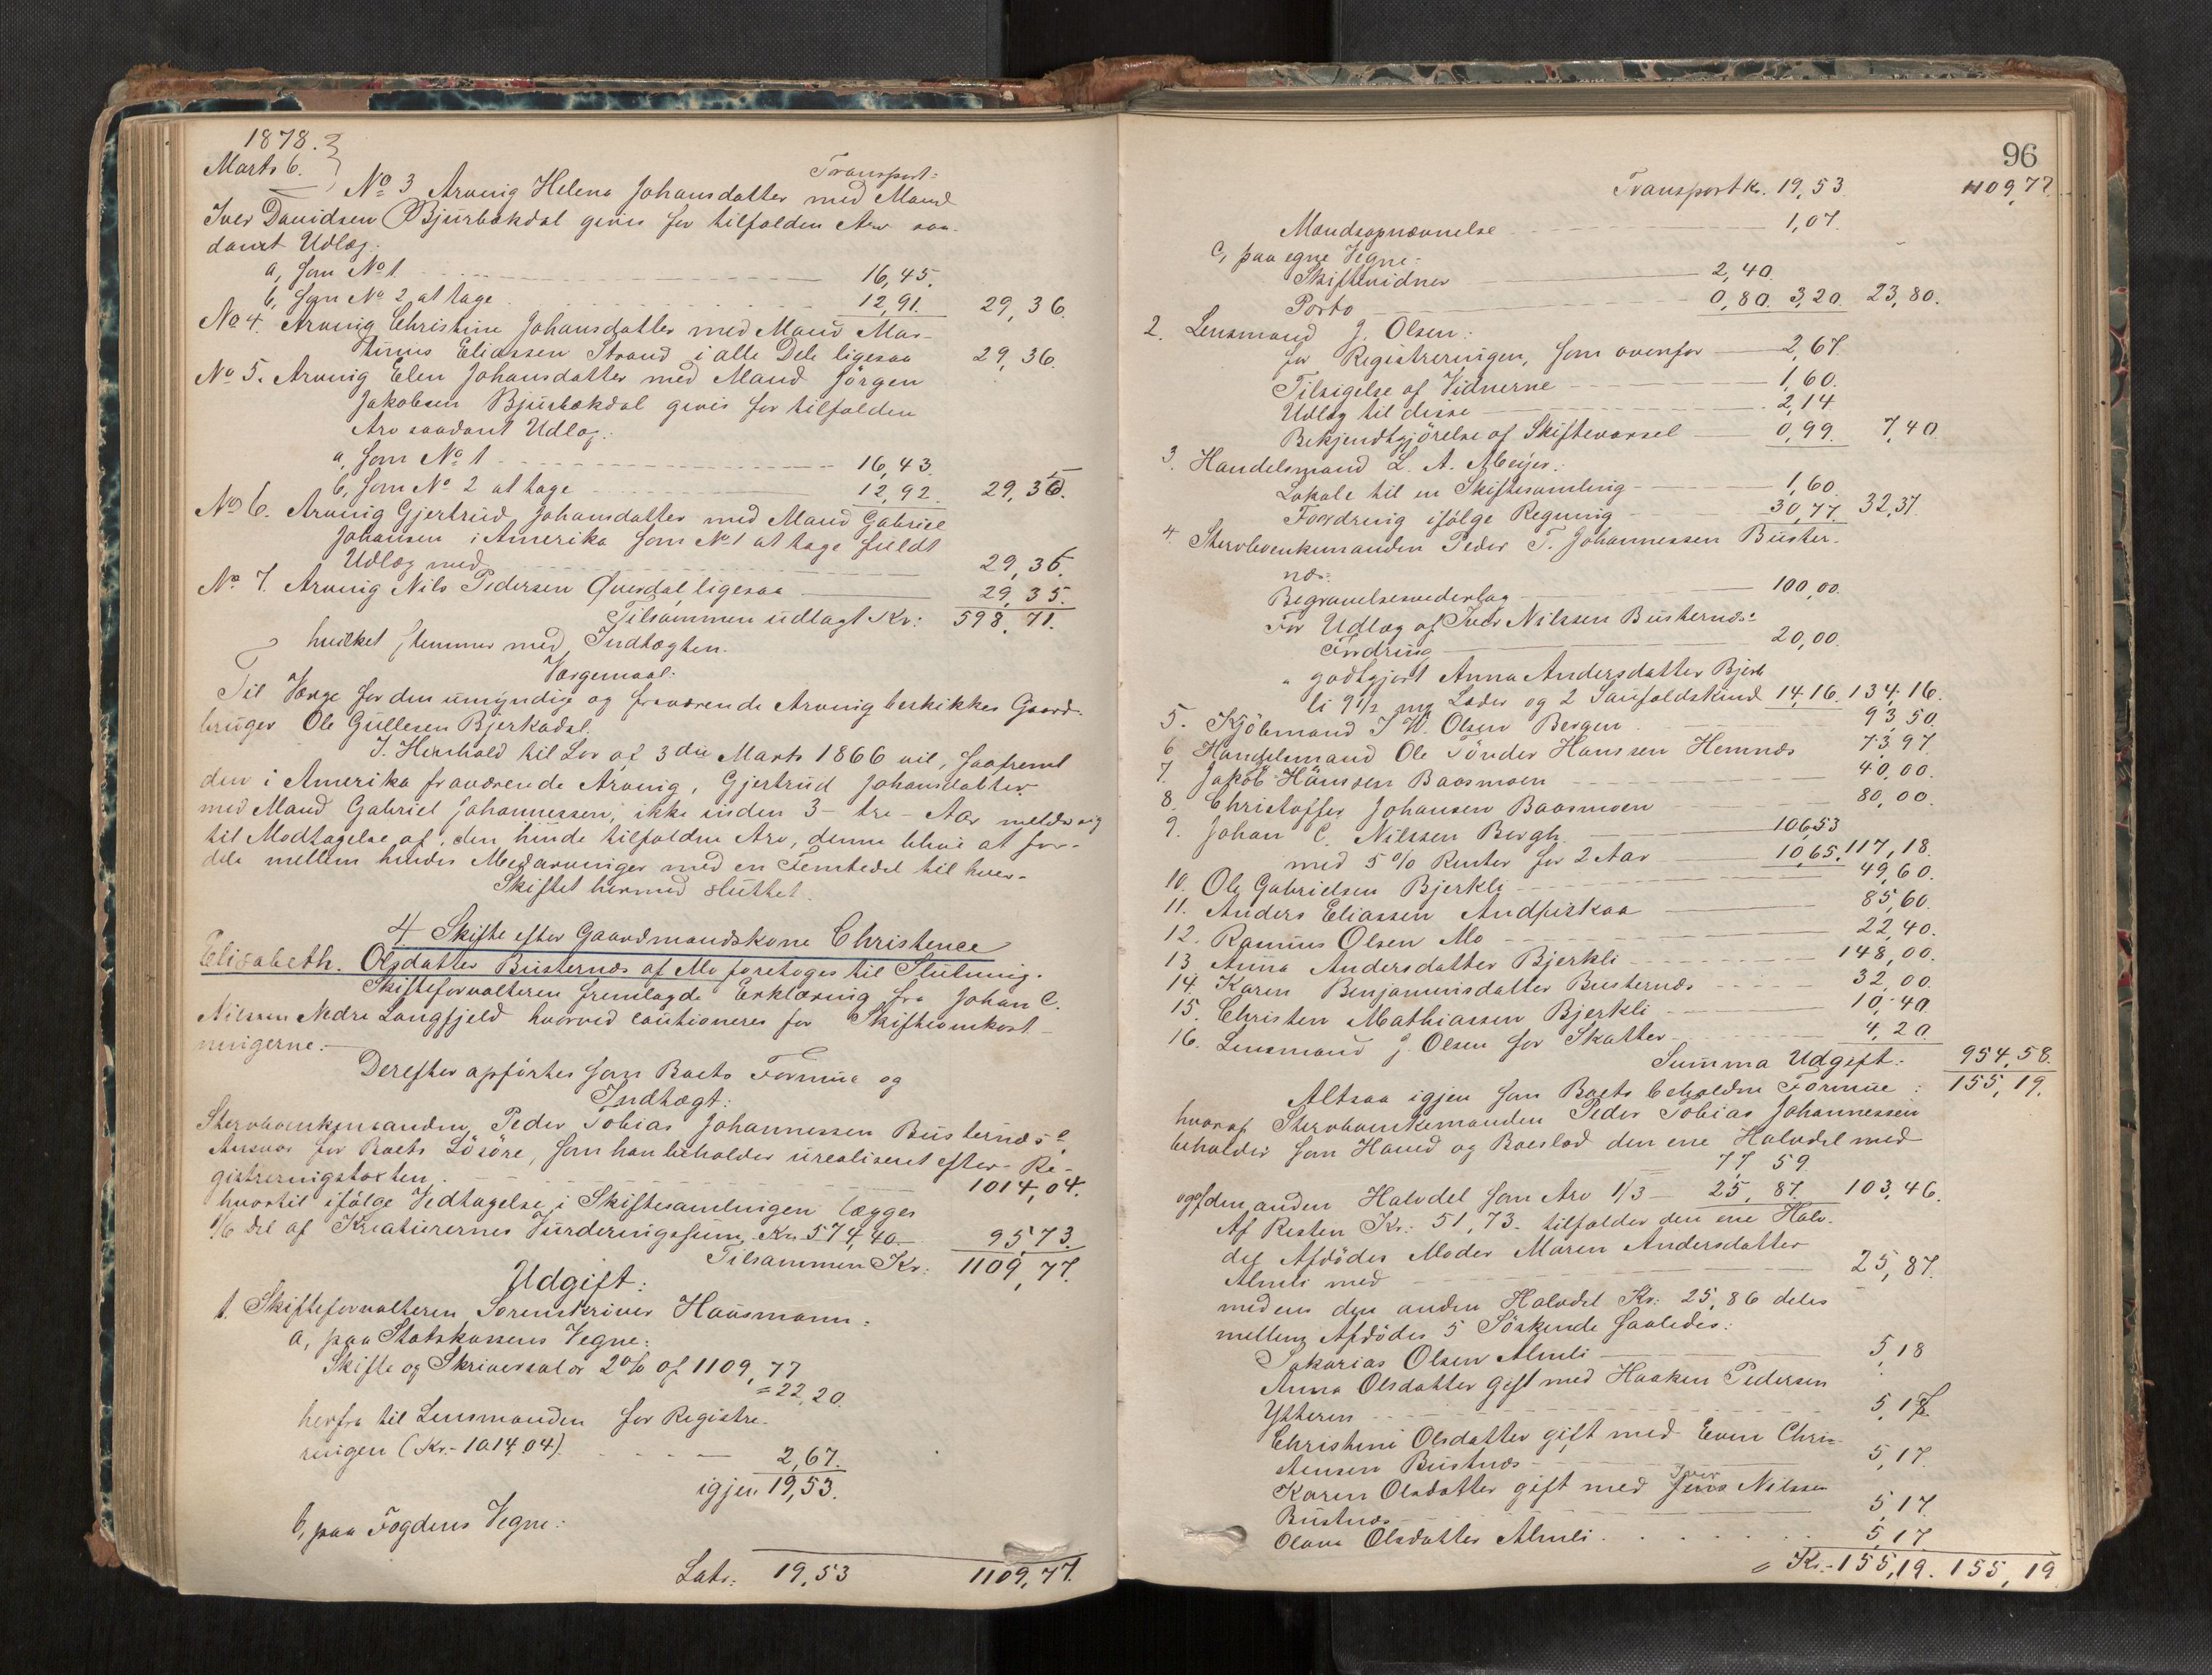 1878.
Marts 6.
Transport:
No 3 Arving Helena Johansdatter med Mand
Iver Davidsen Bjurbækdal gives for tilfalden Arv saa-
dant Udlæg:
a, som No 1. 16,45.
b, som No 2 at tage 12,91. 29,36.
No 4. Arving Christine Johansdatter med Mand Mar-
tinus Eliassen Strand i alle Dele ligesaa 29,36.
No 5. Arving Elen Johansdatter med Mand Jörgen
Jakobsen Bjurbækdal gives for tilfalden
Arv saadant Udlæg:
a, som No 1 16,43.
b, som No 2 at tage 12,92. 29,35.
No 6. Arving Gjertrud Johansdatter med Mand Gabriel
Johansen i Amerika som No 1 at tage fuldt
Udlæg med 29,35.
No 7. Arving Nils Pedersen Øverdal ligesaa 29,35.
Tilsammen udlagt Kr: 598,71.
hvilket stemmer med Indtægten.
Værgemaal:
Til Værge for den umyndige og fraværende Arving beskikkes Gaard-
bruger Ole Gullesen Bjerkadal.
I Henhold til Lov af 3die Marts 1866 vil, saafremt
den i Amerika fraværende Arving, Gjertrud Johansdatter
med Mand Gabriel Johannessen, ikke inden 3 - tre - Aar melder sig
til Modtagelse af den hende tilfaldne Arv, denne blive at for-
dele mellem hendes Medarvinger med en Femtedel til hver.
Skiftet hermed sluttet.
4. Skifte efter Gaardmandskone Christence
Elisabeth Olsdatter Busternæs af Mo foretoges til Slutning.
Skifteforvalteren fremlagde Erklæring fra Johan C.
Nilssen Nedre Langfjeld hvorved cautioneres for Skifteomkost-
ningerne.
Derefter opförtes som Boets Formue og
Indtægt:
Sterbboenkemanden Peder Tobias Johannessen Busternæs's
Ansvar for Boets Lösöre, som han beholder urealiseret efter Re-
gistreringstaxten 1014,04.
hvortil ifölge Vedtagelse i Skiftesamlingen lægges
1/6 Del af Kreaturernes Vurderingssum Kr. 574,40 95,73.
Tilsammen Kr: 1109,77.
Udgift:
1. Skifteforvalteren Sorenskriver Hausmann:
a, paa Statskassens Vegne:
Skifte og Skriversalær 2% af 1109,77
= 22,20.
herfra til Lensmanden for Registre-
ringen (Kr. 1014,04) 2,67.
igjen 19,53.
b, paa Fogdens Vegne:
Lats: 19,53 1109,77.
96
Transport Kr. 19,53. 1109,77.
Mandsopnævnelse 1,07.
c, paa egne Vegne:
Skiftevidner 2,40.
Porto 0,80. 3,20. 23,80.
2. Lensmand J. Olsen:
for Registreringen, som ovenfor 2,67.
Tilsigelse af Vidnerne 1,60.
Udlæg til disse 2,14
Bekjendtgjörelse af Skiftevarsel 0,99. 7,40
3. Handelsmand L. A. Meyer:
Lokale til en Skiftesamling 1,60.
Fordring ifölge Regning 30,77. 32,37.
4. Sterbboenkemanden Peder T. Johannessen Buster-
næs:
Begravelsesvederlag 100,00.
For Udlæg af Iver Nilssen Busternæs:
Fordring 20,00.
" godtgjort Anna Andersdatter Bjerk
li 9 1/2 mg Læder og 2 Saufoldskind 14,16. 134,16.
5. Kjöbmand J W. Olsen Bergen 93,50.
6 Handelsmand Ole Tönder Hanssen Hemnæs 73,97.
7. Jakob Hanssen Baasmoen 40,00.
8. Christoffer Johansen Baasmoen 80,00.
9. Johan C. Nilssen Bergh 106,53
med 5% Renter for 2 Aar 10,65. 117,18.
10. Ole Gabrielsen Bjerkli 49,60.
11. Anders Eliassen Andfiskaa 85,60.
12. Rasmus Olsen Mo 22,40.
13 Anna Andersdatter Bjerkli 148,00.
14. Karen Benjaminsdatter Busternæs 32,00.
15. Christen Mathiassen Bjerkli 10,40
16. Lensmand J. Olsen for Skatter 4,20
Summa Udgift: 954,58.
Altsaa igjen som Boets beholdne Formue: 155,19.
hvoraf Sterbboenkemanden Peder Tobias Johannessen
beholder som Haand og Boeslod den ene Halvdel med
77,59.
og af den anden Halvdel som Arv 1/3 25,87. 103,46.
Af Resten Kr: 51,73. tilfalder den ene Halv-
del Afdödes Moder Maren Andersdatter
Almli med 25,87.
medens den anden Halvdel Kr: 25,86 deles
mellem Afdödes 5 Söskende saaledes:
Sakarias Olsen Almli 5,18
Anna Olsdatter gift med Haaken Pedersen
Ytteren 5,17.
Christine Olsdatter gift med Even Chri-
stensen Bustnæs 5,17.
Karen Olsdatter gift med Jens Iver Nilssen
Bustnæs 5,17.
Olava Olsdatter Almli 5,17
= Kr. 155,19. 155,19